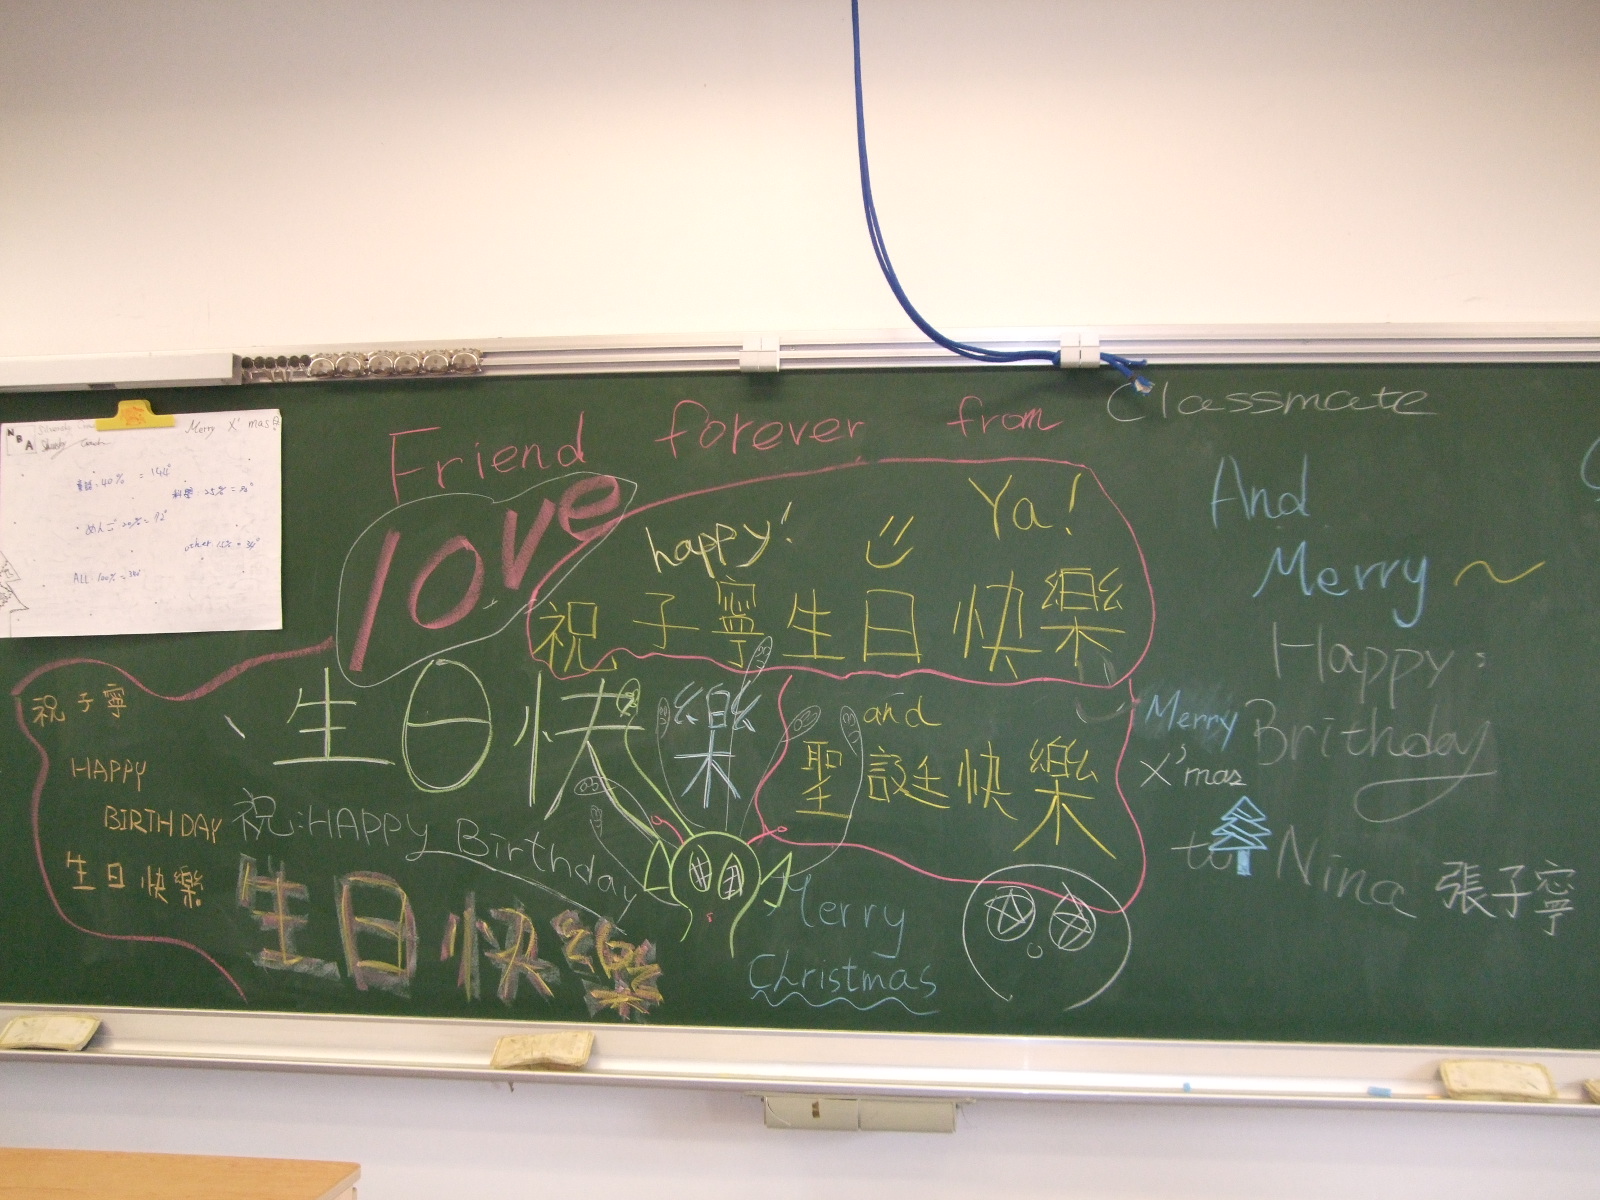 Friend forever from Classmate
love
happy! Ya!
祝子寧生日快樂
and
聖誕快樂
祝子寧
HAPPY
BIRTHDAY
生日快樂
生日快樂
祝:HAPPY Birthday
生日快樂
Merry
Christmas
And
Merry ~
Happy:
Brithday
to Nina 張子寧
Merry
X'mas
NBA
Merry X'mas
40% = 144°
25% = 90°
other
ALL